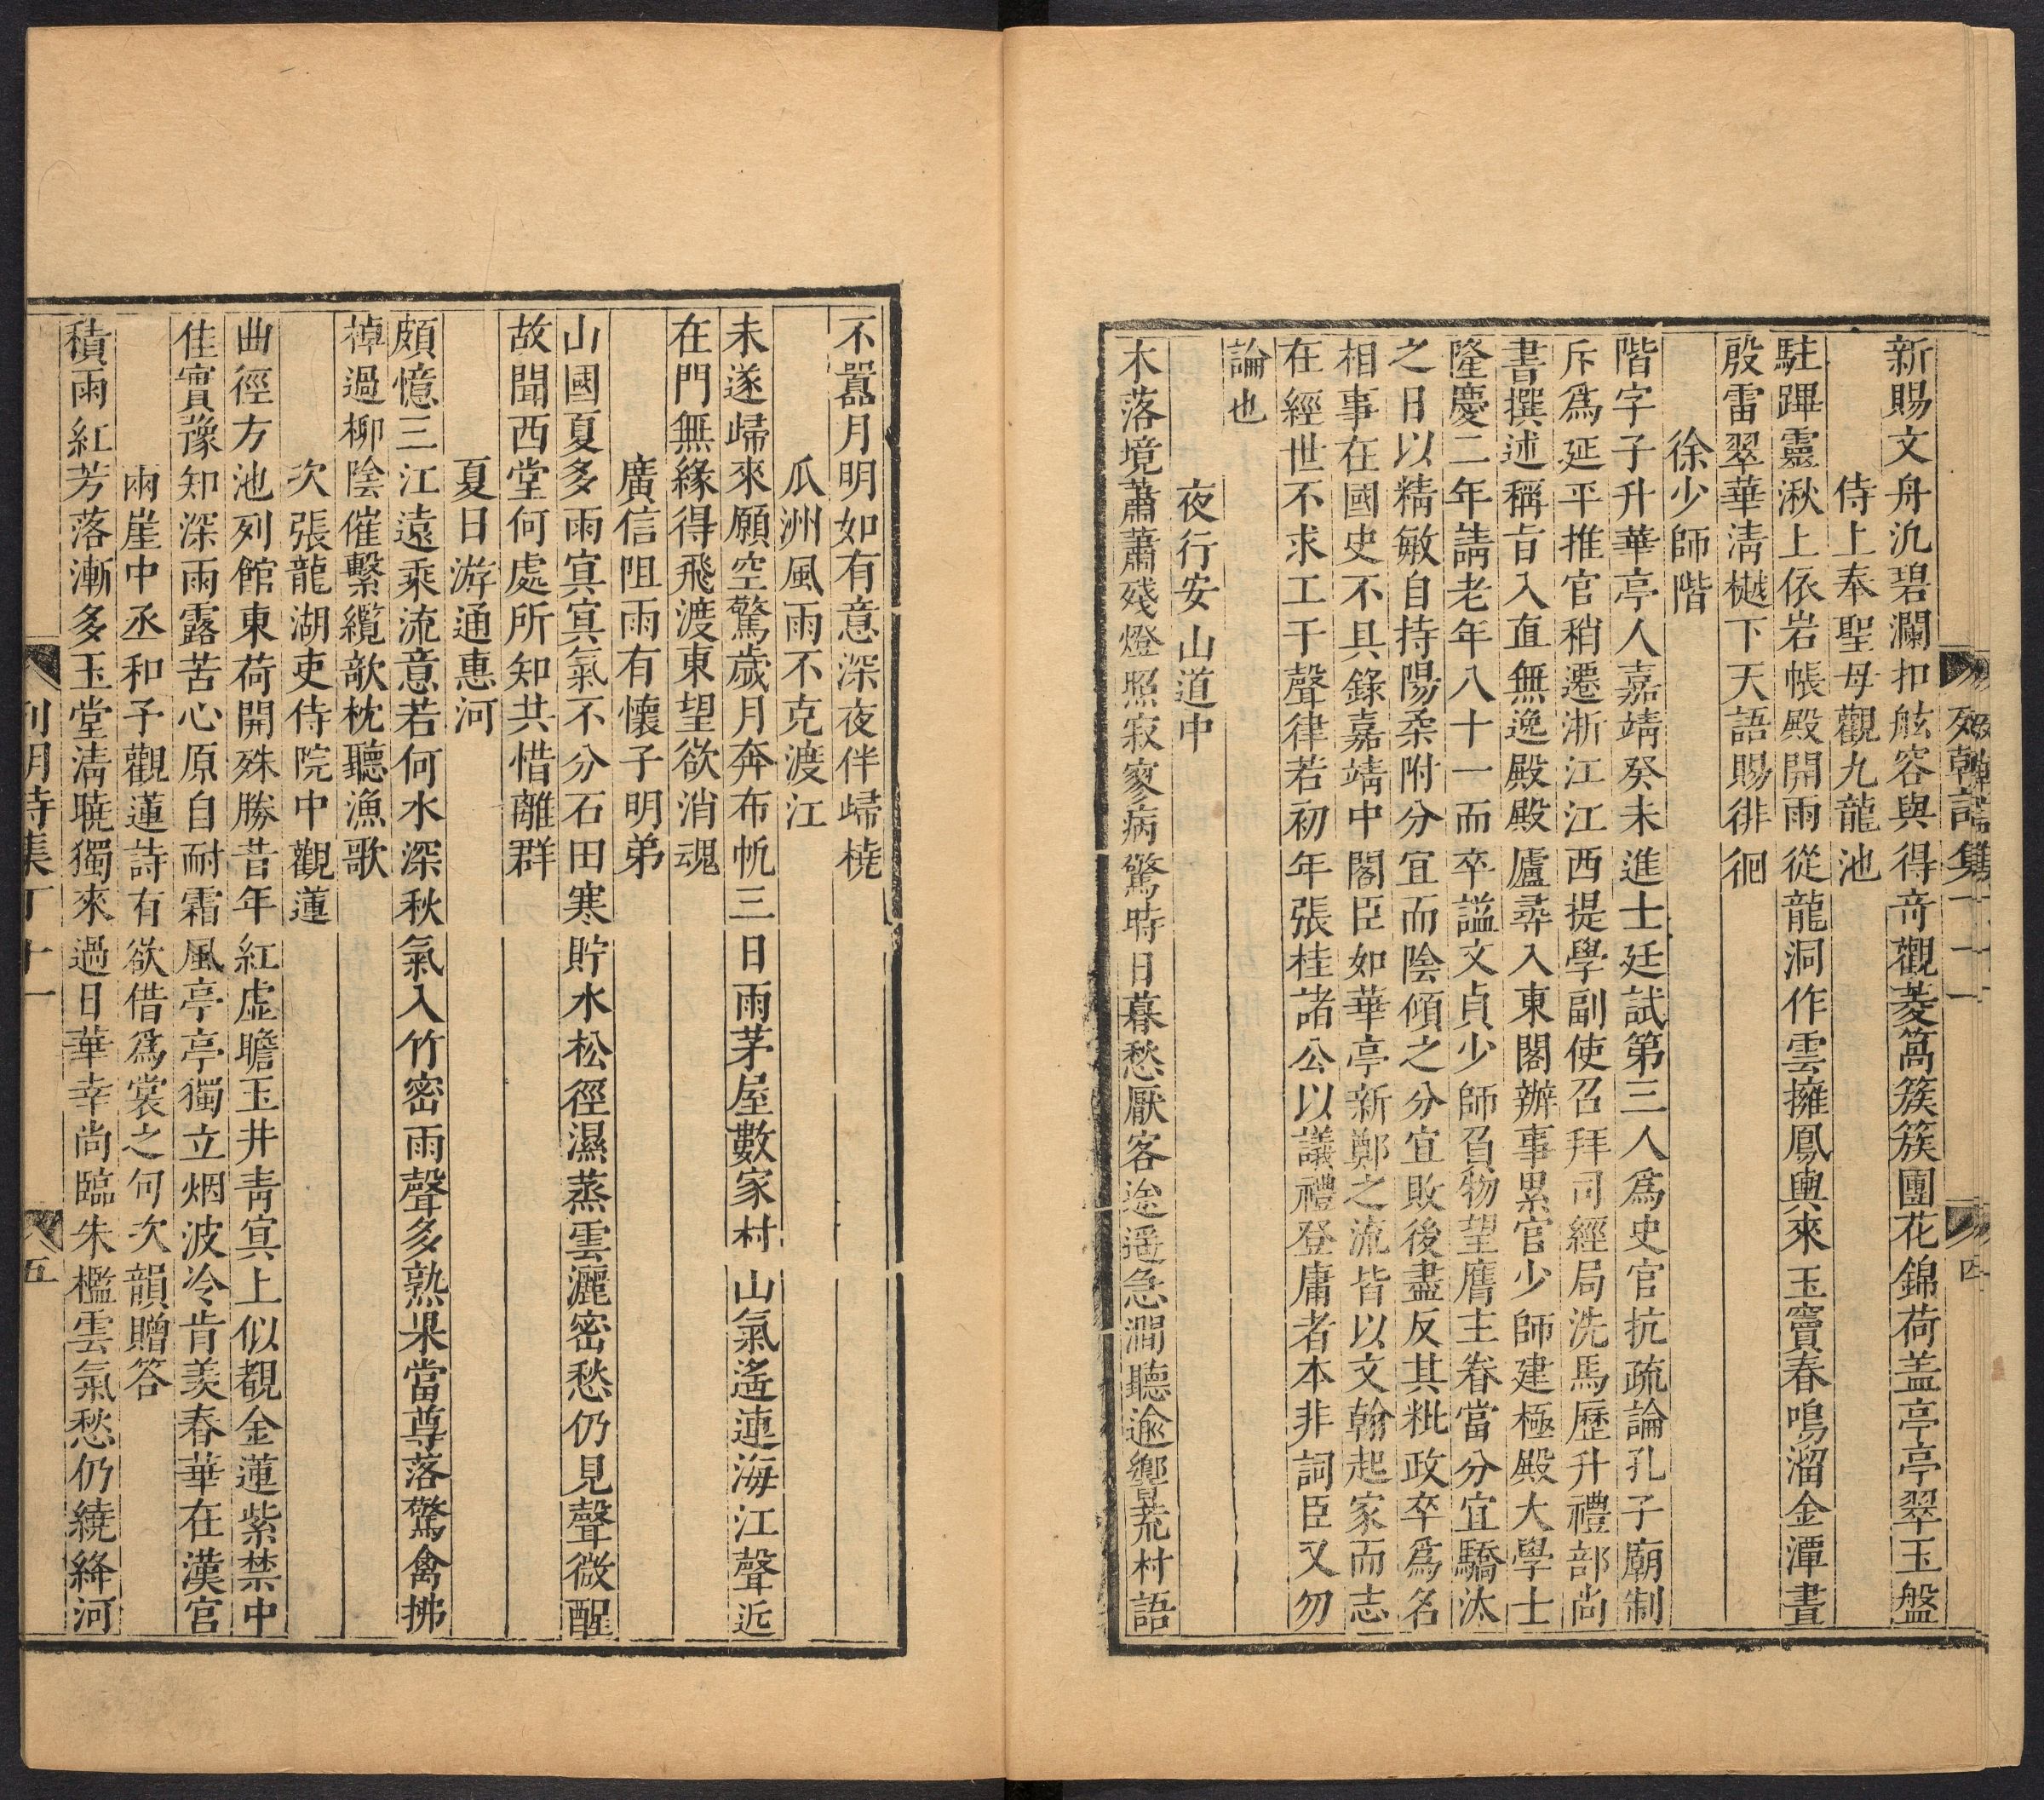 新賜文舟氿碧瀾扣舷容與得奇觀菱篙簇簇團花錦荷盖亭亭翠玉盤
侍上奉聖母觀九龍池
駐蹕靈湫上依岩帳殿開雨從龍洞作雲擁鳳輿來玉竇春鳴溜金潭晝
殷雷翠華淸樾下天語賜徘徊
徐少師階
階字子升華亭人嘉靖癸未進士廷試第三人爲史官抗疏論孔子廟制
斥爲延平推官稍遷浙江江西提學副使召拜司經局洗馬歷升禮部尚
書撰述稱旨入直無逸殿殿廬尋入東閣辦事累官少師建極殿大學士
隆慶二年請老年八十一而卒謚文貞少師負物望膺主眷當分宜驕汰
之日以精敏自持陽柔附分宜而陰傾之分宜敗後盡反其粃政卒爲名
相事在國史不具錄嘉靖中閣臣如華亭新鄭之流皆以文翰起家而志
在經世不求工于聲律若初年張桂諸公以議禮登庸者本非詞臣又勿
論也
夜行安山道中
木落境蕭蕭殘燈照寂寥病驚時日暮愁厭客途遥急澗聽逾響荒村語
四
不囂月明如有意深夜伴歸橈
瓜洲風雨不克渡江
未遂歸來願空驚歲月奔布帆三日雨茅屋數家村山氣遙連海江聲近
在門無緣得飛渡東望欲消魂
廣信阻雨有懷子明弟
山國夏多雨冥冥氣不分石田寒貯水松徑濕蒸雲灑密愁仍見聲微醒
故聞西堂何處所知共惜離群
夏日游通惠河
頗憶三江遠乘流意若何水深秋氣入竹密雨聲多熟果當尊落驚禽拂
棹過柳陰催繫纜欹枕聽漁歌
次張龍湖吏侍院中觀蓮
曲徑方池列館東荷開殊勝昔年紅虛瞻玉井靑冥上似覩金蓮紫禁中
佳實豫知深雨露苦心原自耐霜風亭亭獨立烟波冷肯羨春華在漢宮
兩崖中丞和子觀蓮詩有欲借爲裳之句次韻贈答
積雨紅芳落漸多玉堂淸曉獨來過日華幸尚臨朱檻雲氣愁仍繞絳河
列朝詩集丁十一
五